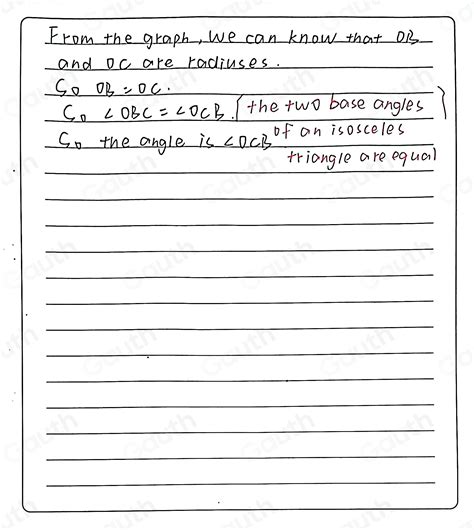 From the graph, we can know that OB
and OC are radiuses.
So OB = OC.
So ∠OBC = ∠OCB. (the two base angles
of an isosceles
triangle are equal)
So the angle is ∠OCB
Gauth